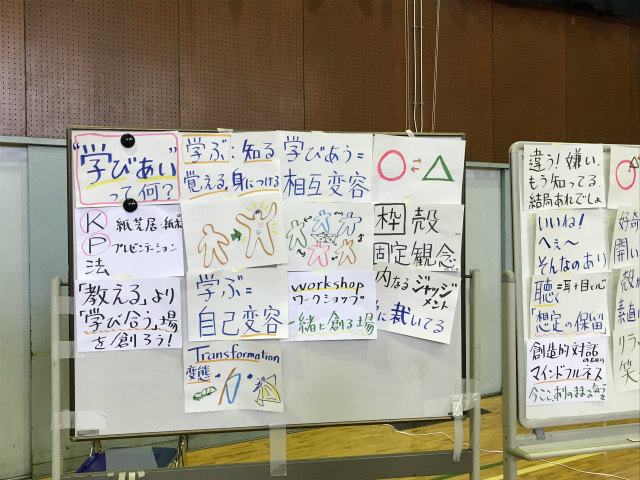 "学びあい"
って何？
K 紙芝居
P プレゼンテーション
法
「教える」より
「学び合う」場
を創ろう！
学ぶ：知る
覚える、身につける
学ぶ＝
自己変容
Transformation
変態
学びあう＝
相互変容
workshop
ワークショップ
一緒に創る場
○⇄△
枠 殻
固定観念
内なるジャッジ
メント
に裁いてる
違う！嫌い、
もう知ってる
結局あれでしょ
いいね！
へぇ〜
そんなのあり
聴く＝耳＋目＋心
「想定の保留
創造的対話
のための
マインドフルネス
今ここ、ありのままの気づき
好奇
開い
殻か
素直に
リラッ
笑